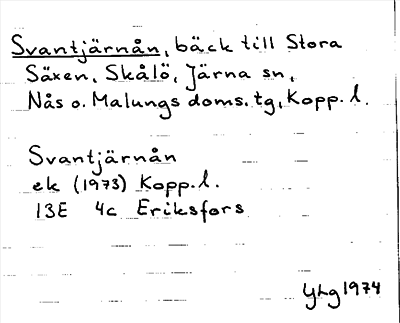 Svantjärnån, bäck till Stora
Säxen, Skålö, Järna sn,
Nås o. Malungs doms.tg, Kopp. l.
Svantjärnån
ek (1973) Kopp. l.
13E 4c Eriksfors
YLg 1974